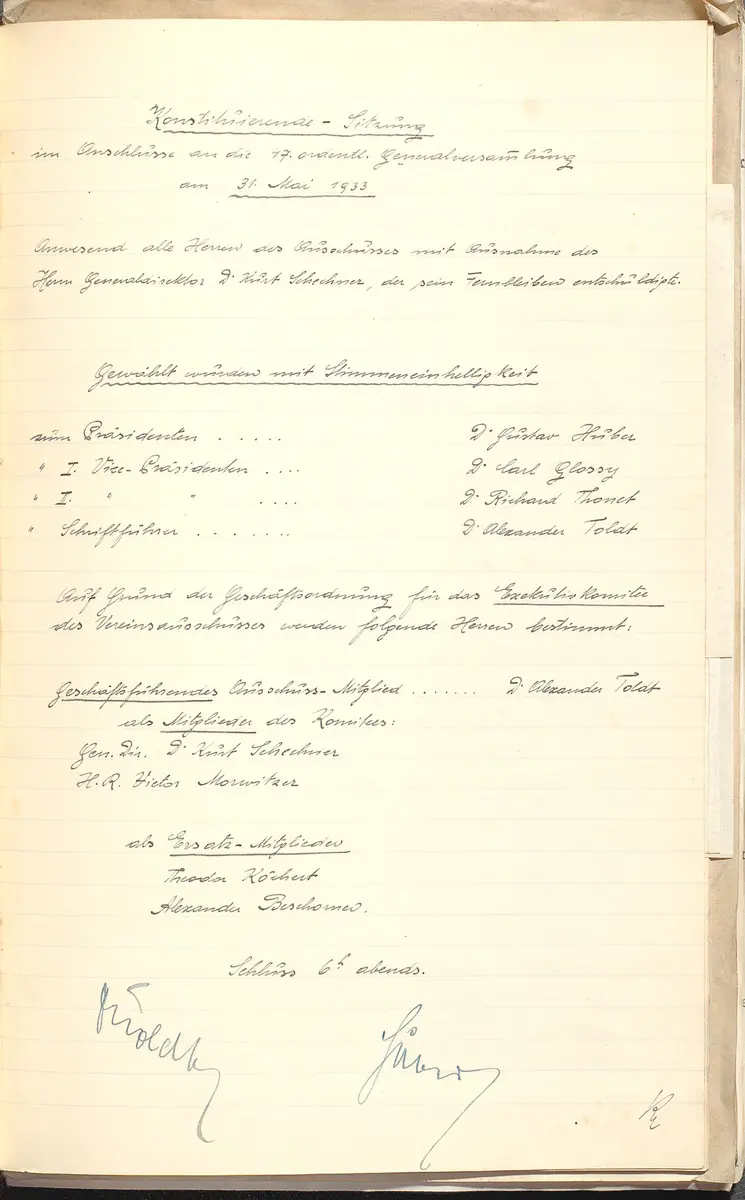 Konstituierende - Sitzung
im Anschlusse an die 17. ordentl. Generalversam̅lung
am 31. Mai 1933
Anwesend alle Herren des Ausschusses mit Ausnahme des
Herrn Generaldirektor Dr Kurt Schechner, der sein Fernbleiben entschuldigte.
Gewählt wurden mit Stimmeneinhelligkeit
zum Präsidenten . . . . . Dr Gustav Huber
" I. Vize-Präsidenten . . . . Dr Carl Glossy
" II. " " . . . . Dr Richard Thonet
" Schriftführer . . . . . . . Dr Alexander Toldt
Auf Grund der Geschäftsordnung für das Exekutivkomitee
des Vereinsausschusses werden folgende Herren bestimmt:
Geschäftsführendes Ausschuss-Mitglied . . . . . . . Dr Alexander Toldt
als Mitglieder des Komitees:
Gen. Dir. Dr Kurt Schechner
H. R. Victor Morwitzer
als Ersatz-Mitglieder
Theodor Köchert
Alexander Beschorner.
Schluss 6h abends.
Toldt Huber